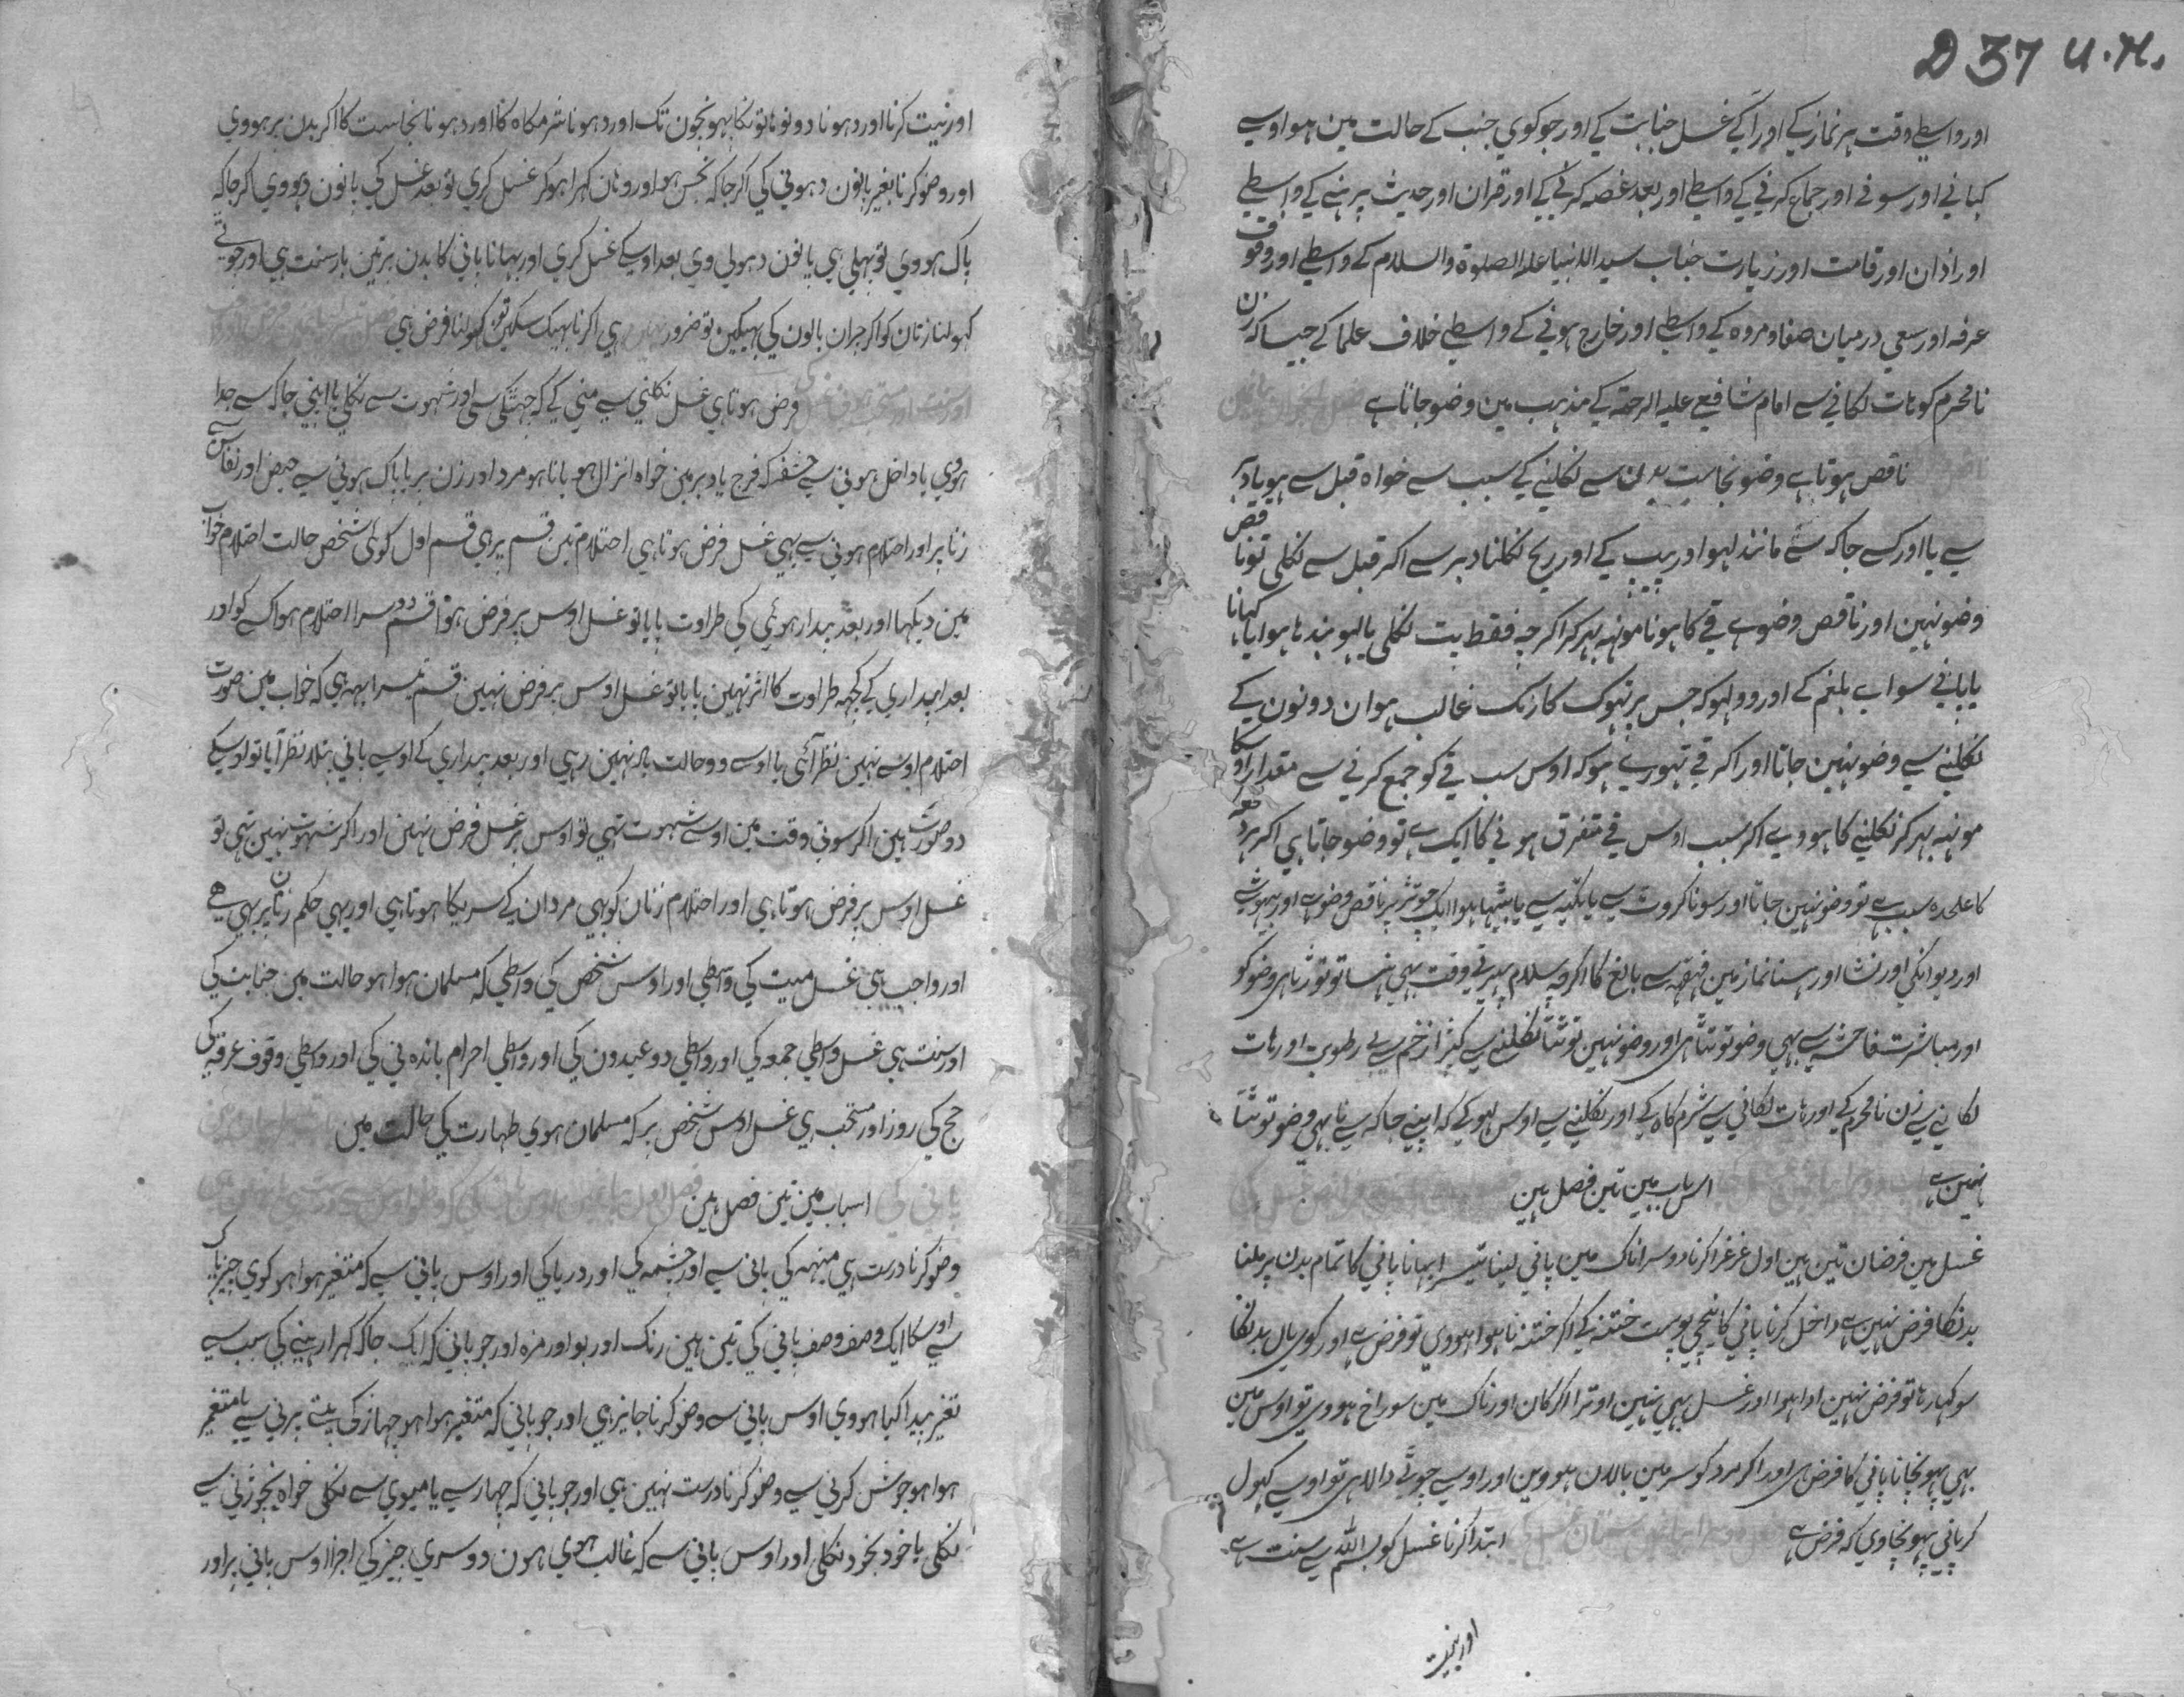 D 37 U.M.
اور واسطے وقت ہر نماز کے اور آگے غسل جنابت کے اور جو کوی جنب کے حالت مین ہو اوسے
کہانے اور سونے اور جماع کرنے کے واسطے اور بعد غصہ کرنے کے اور قران اور حدیث پرہنے کے واسطے
اور اذان اور قامت اور زیارت جناب سید الانبیا علیہ الصلوۃ والسلام کے واسطے اور وقوف
عرفہ اور سعی درمیان صفا و مروہ کے واسطے اور خارج ہونے کے واسطے خلاف علما کے جیسا کہ زن
نامحرم کو ہات لکانے سے امام شافعے علیہ الرحمۃ کے مذہب مین وضو جاتا ہے
ناقص ہوتا ہے وضو نجاست بدن سے نکلنے کے سبب سے خواہ قبل سے ہو یا دبر
سے یا اور کسے جاکہ سے مانند لہو اور پیپ کے اور ریح نکلنا دبر سے اکر قبل سے نکلی تو ناقص
وضو نہین اور ناقص وضو ہے قے کا ہونا مونہہ بہر کر اکرچہ فقط پت نکلی یا لہو بندہا ہوا یا کہانا
یا پانے سواے بلغم کے اور وو لہو کہ جس پر تہوک کا رنک غالب ہو ان دونون کے
نکلنے سے وضو نہین جاتا اور اکر قے تہورے ہو کہ اوس سب قے کو جمع کرنے سے مقدار اوسکا
مونہہ بہر کر نکلنے کا ہووے اکر سبب اوس قے متفرق ہونے کا ایک ہے تو وضو جاتا ہی اکر ہر دفعہ
کا علحدہ سبب ہے تو وضو نہین جاتا اور سونا کروت سے یا تکیہ سے یا بیٹہا ہوا ایک چوتڑ پر ناقص وضو ہے اور بیہوشے
اور دیوانکی اور نشا اور ہسنا نماز مین قہقہہ سے بالغ کا اکرچہ سلام پہیرتے وقت بہی ہنسا تو توڑتا ہی وضو کو
اور مباشرت فاحشہ سے بہی وضو توٹتا ہی اور وضو نہین توٹتا نکلنے سے کیڑا زخم سے بے رطوبت اور ہات
لکانے سے زن نامحرم کے اور ہات لکانے سے شرم کاہ کے اور نکلنے سے اوس لہو کے کہ اپنے جاکہ سے نا بہی وضو توٹتا
نہین ہے
اس باب مین تین فصل ہین
غسل مین فرضان تین ہین اول غرغرا کرنا دوسرا ناک مین پانی لینا تیسرا بہانا پانے کا تمام بدن پر ملنا
بدنکا فرض نہین ہے داخل کرنا پانی کا نیچی پوست ختنہ کے اکر ختنہ نا ہوا ہووی تو فرض ہے اور کوی بال بدنکا
سوکہا رہا تو فرض نہین ادا ہوا اور غسل بہی نہین اوترا اکر کان اور ناک مین سوراخ ہووی تو اوس مین
بہی پہونچانا پانی کا فرض ہی اور اکر مرد کو سر مین بالان ہووین اور اوسے چوٹی دالا ہی تو اوسے کہول
کر پانی پہونچاوی کہ فرض ہے
ابتدا کرنا غسل کو بسم اللہ سے سنت ہے
اور نیت
اور نیت کرنا اور دہونا دونو ہاتونکا پہونچون تک اور دہونا شرمکاہ کا اور دہونا نجاست کا اکر بدن پر ہووی
اور وضو کرنا بغیر پانون دہونی کی اکر جاکہ نجس ہو اور وہان کہرا ہوکر غسل کری تو بعد غسل کی پانون دہووی اکر جاکہ
پاک ہووی تو پہلی ہی پانون دہولی وی بعد اوسکے غسل کری اور بہانا پانی کا بدن پر تین بار سنت ہی اور چوٹی
کہولنا زنان کو اکر جران بالون کی بہیکین تو ضرور نہین ہی اکر نا بہیک سکین تو کہولنا فرض ہی
فرض ہوتا ہی غسل نکلنی سے منی کے کہ جہتکی سی اور شہوت سے نکلی یا اپنی جاکہ سے جدا
ہووی یا داخل ہونی سے حشفہ کہ فرج یا دبر مین خواہ انزال ہو یا نا ہو مرد اور زن پر یا پاک ہونی سے حیض اور نفاس سے
زنا پر اور احتلام ہونی سے بہی غسل فرض ہوتا ہی احتلام تین قسم پر ہی قسم اول کوئی شخص حالت احتلام خواب
مین دیکہا اور بعد بیدار ہوئی کی طراوت پایا تو غسل اوس پر فرض ہوا قسم دوسرا احتلام ہوا کسے کو اور
بعد بیداری کے کچہہ طراوت کا اثر نہین پایا تو غسل اوس پر فرض نہین قسم تیسرا یہہ ہی کہ خواب مین صورت
احتلام اوسے نہین نظر آئی یا اوسے وو حالت یاد نہین رہی اور بعد بیداری کے اوسے پانی پتلا نظر آیا تو اوسکے
دو صورت ہین اکر سوتی وقت مین اوسے شہوت تہی تو اوس پر غسل فرض نہین اور اکر شہوت نہین تہی تو
غسل اوس پر فرض ہوتا ہی اور احتلام زنان کو بہی مردان کے سریکا ہوتا ہی اور یہی حکم زنان پر بہی ہے
اور واجب ہی غسل میت کی واسطی اور اوس شخص کی واسطی کہ مسلمان ہوا ہو حالت مین جنابت کی
اور سنت ہی غسل واسطی جمعہ کی اور واسطی دو عیدون کی اور واسطی احرام باندہنی کی اور واسطی وقوف عرفہ کی
حج کی روز اور مستحب ہی غسل اوس شخص پر کہ مسلمان ہوی طہارت کی حالت مین
اسباب مین تین فصل ہین
وضو کرنا درست ہی مینہہ کی پانی سے اور چشمہ کی اور دریا کی اور اوس پانی سے کہ متغیر ہوا ہو کوی چیز پاک
سے اوسکا ایک وصف وصف پانی کی تین ہین رنک اور بو اور مزہ اور جو پانی کہ ایک جاکہ کہرا رہنے کی سبب سے
تغیر پیدا کیا ہووی اوس پانی سے وضو کرنا جایز ہی اور جو پانی کہ متغیر ہوا ہو جہاز کی پتے پرنی سے یا متغیر
ہوا ہو جوش کرنی سے وضو کرنا درست نہین ہی اور جو پانی کہ جہار سے یا میوی سے نکلی خواہ نچوڑنی سے
نکلی یا خود بخود نکلی اور اوس پانی سے کہ غالب ہوی ہون دوسری چیز کی اجزا اوس پانی پر اور